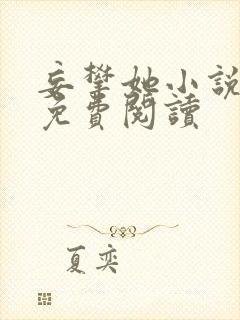 妄攀她小說
免費閱讀
夏奕